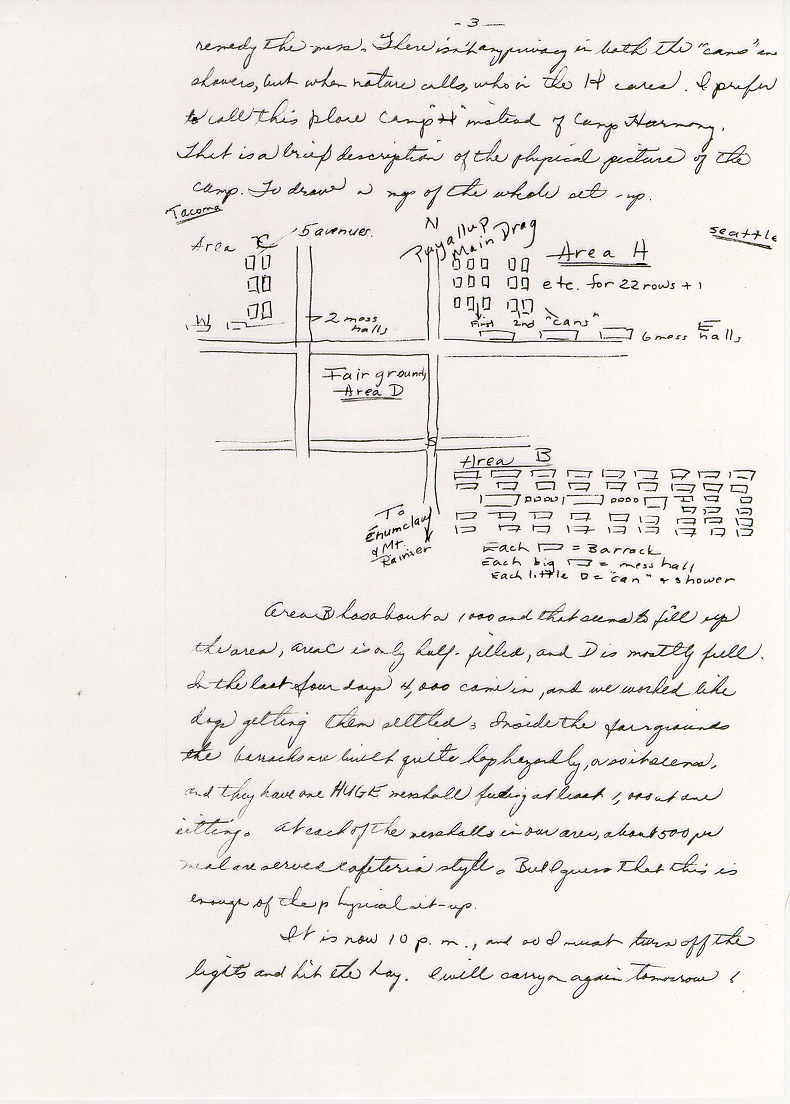 - 3 -
remedy the mess. There isn't any privacy in both the "cans" and
showers, but when nature calls, who in the H cares. I prefer
to call this place Camp "H" instead of Camp Harmony.
That is a brief description of the physical picture of the
camp. To draw a map of the whole set-up.
Tacoma
Seattle
N
Area C
5 avenues.
Puyallup
Main Drag
Area A
etc. for 22 rows + 1
First 2nd "cans"
W
2 mess
halls
6 mess halls
E
Fairground
Area D
S
Area B
To
Enumclaw
& Mt.
Rainier
Each ▭ = Barrack
Each big ▭ = mess hall
Each little D = "can" & shower
Area B has about a 1000 and that seems to fill up
the area, area C is only half-filled, and D is mostly full.
In the last four days 4,000 came in, and we worked like
dogs getting them settled. Inside the fairgrounds
the barracks are built quite haphazardly, or so it seems,
and they have one HUGE messhall feeding at least 1,000 at one
sitting. At each of the messhalls in our area, about 500 per
meal are served cafeteria style. But I guess that this is
enough of the physical set-up.
It is now 10 p.m., and so I must turn off the
lights and hit the hay. I will carry on again tomorrow